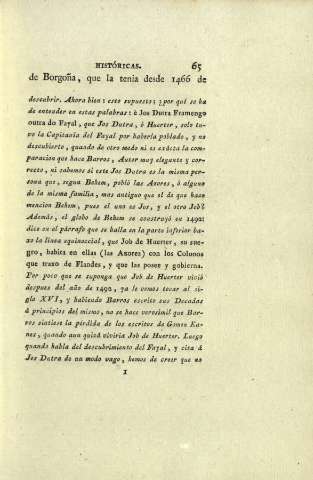 HISTÓRICAS. 65
de Borgoña, que la tenia desde 1466 de
descubrir. Ahora bien: este supuesto: ¿por qué se ha
de entender en estas palabras: è Jos Dutra Framengo
outra do Fayal, que Jos Dutra, è Huerter, solo tu-
vo la Capitanía del Fayal por haberla poblado, y no
descubierto, quando de otro modo ni es exácta la com-
paracion que hace Barros, Autor muy elegante y cor-
recto, ni sabemos si este Jos Dutra es la misma per-
sona que, segun Behem, pobló las Azores, ó alguno
de la misma familia, mas antiguo que el de que hace
mencion Behem, pues el uno es Jos, y el otro Job?
Además, el globo de Behem se construyó en 1492:
dice en el párrafo que se halla en la parte inferior ba-
xo la linea equinoccial, que Job de Huerter, su sue-
gro, habita en ellas (las Azores) con los Colonos
que traxo de Flandes, y que las posee y gobierna.
Por poco que se suponga que Job de Huerter vivió
despues del año de 1492, ya le vemos tocar al si-
gla XVI, y habiendo Barros escrito sus Decadas
à principios del mismo, no se hace verosimil que Bar-
ros sintiese la pérdida de los escritos de Gomez Ea-
nes, quando aun quizá viviria Job de Huerter. Luego
quando habla del descubrimiento del Fayal, y cita á
Jos Dutra de un modo vago, hemos de creer que no
I